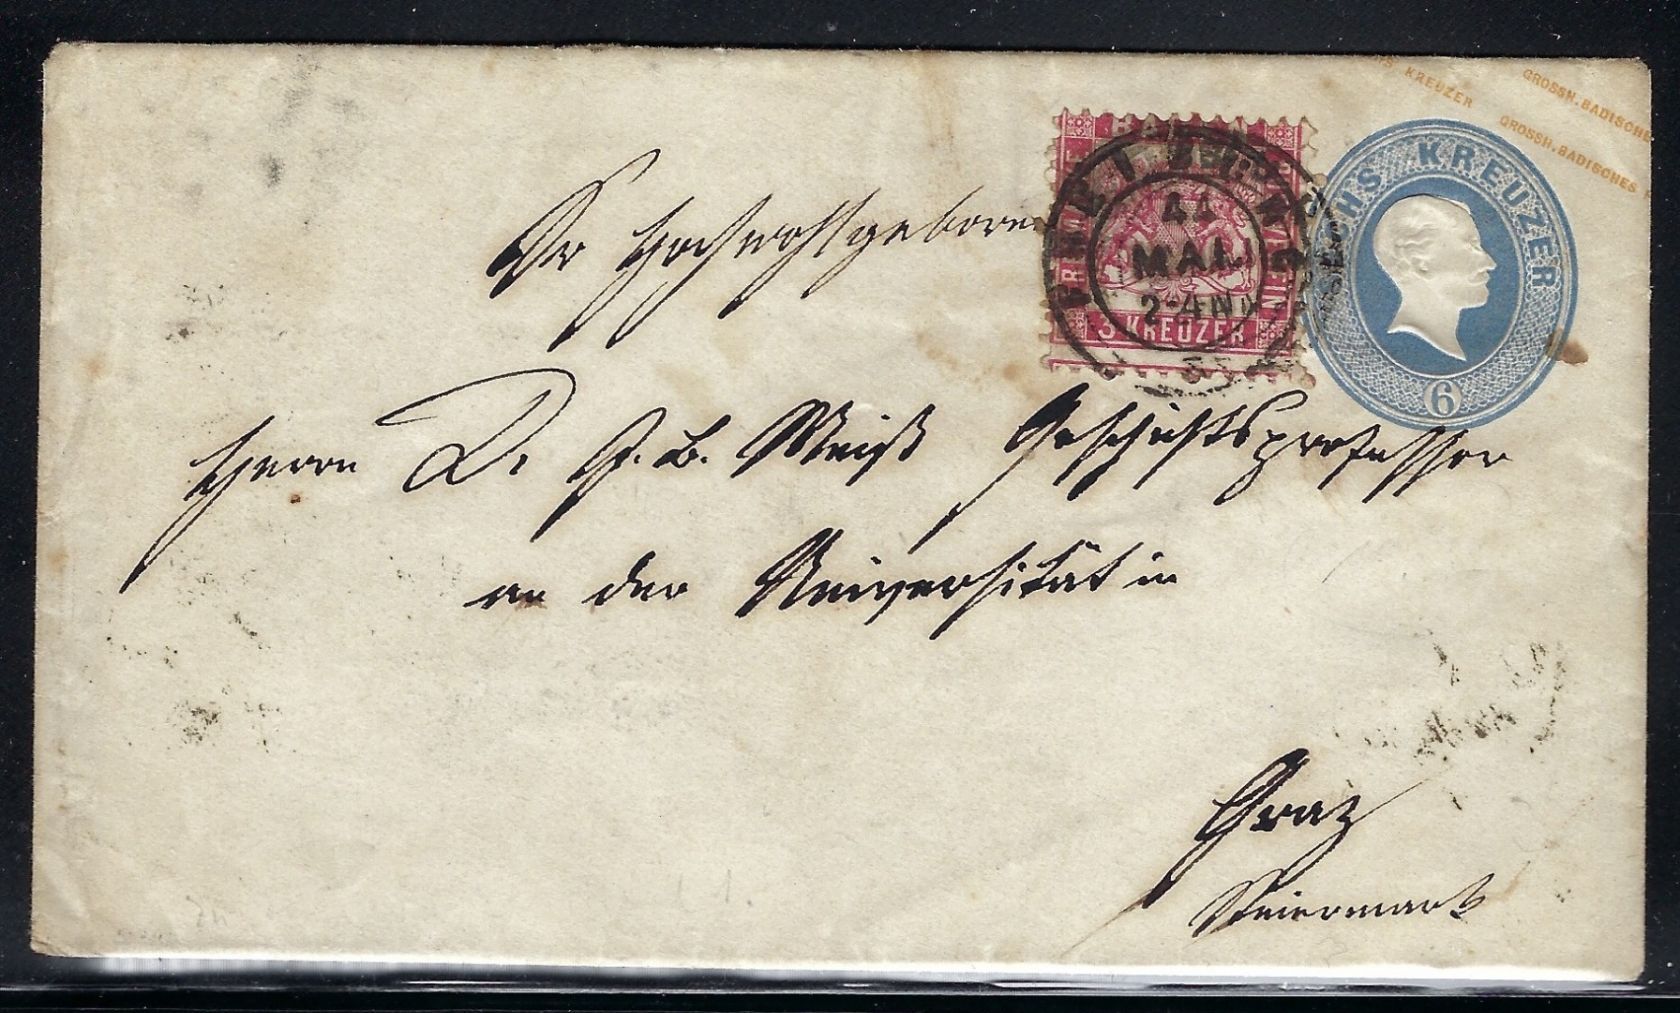 GROSSH. BADISCHE
S KREUZER
GROSSH. BADISCHES
SECHS KREUZER
6
BADEN
FREIMARKE
3 KREUZER
FREIBURG
11
MAI
2-4 N
Sr Hochwohlgeboren
Herrn Dr J. B. Weiß Geschichtsprofessor
an der Universität in
Graz
Steiermark